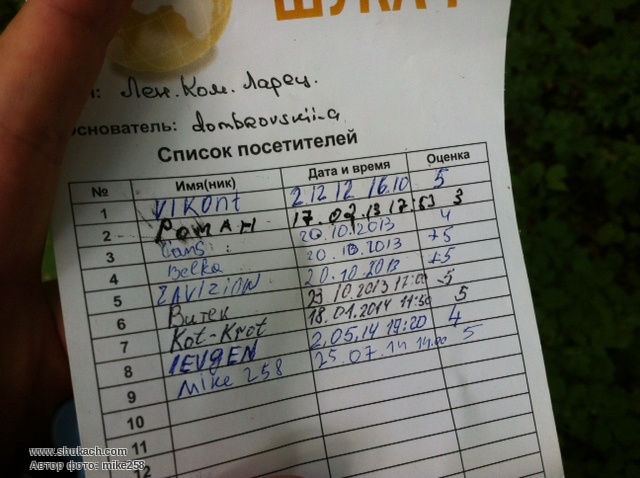 ШУКАЧ
: Лен.Ком.Ларец.
основатель: dombrovskii-a
Список посетителей
№ Имя(ник) Дата и время Оценка
1 VIKOnt 2 12 12 16.10 5
2 РОМАН 17.09.13 17:53 3
3 Gans 20.10.2013 4
4 Belka 20.10.2013 +5
5 ZAVIZION 20.10.2013 +5
6 Витек 23.10.2013 17:00 5
7 Kot-Krot 18.01.2014 11:30 5
8 IEVGEN 2.05.14 19:20 4
9 Mike 258 25.07.14 14.00 5
10
11
12
www.shukach.com
Автор фото: mike258